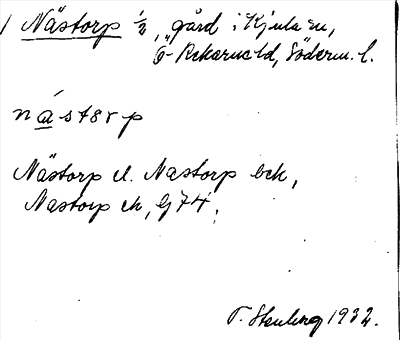 Nästorp ½, gård i Kjula sn,
Ö Rekarne hd, Söderm. l.
nástorp
Nästorp el. Nastorp bck,
Nastorp ek, Gj 74.
T. Stenberg 1932.